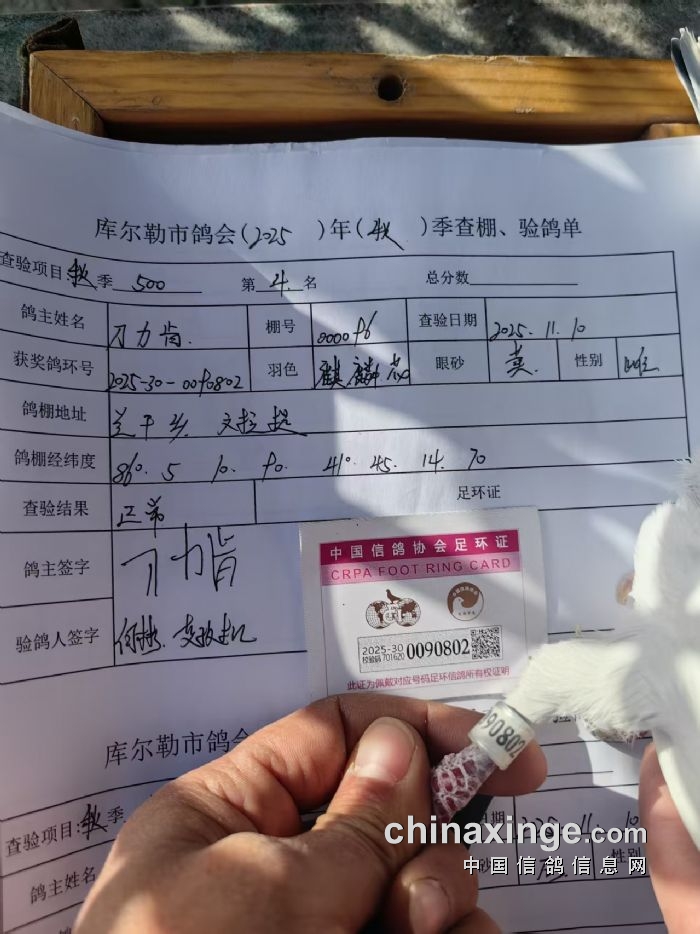 库尔勒市鸽会(2025)年(秋)季查棚、验鸽单
查验项目:秋季 500 第 4 名 总分数
鸽主姓名 刀力肯 棚号 000096 查验日期 2025.11.10
获奖鸽环号 2025-30-0090802 羽色 麒麟花 眼砂 黄 性别 雌
鸽棚地址 兰干乡
鸽棚经纬度 86°. 5 10. 90. 41°. 45. 14. 70
查验结果 正常 足环证
鸽主签字 刀力肯
验鸽人签字
中国信鸽协会足环证
CRPA FOOT RING CARD
2025-30
校验码 701620 0090802
此证为佩戴对应号码足环信鸽所有权证明
90802
库尔勒市鸽会
查验项目:秋季
日期 2025.11.10
鸽主姓名
砂 性别
chinaxinge.com
中国信鸽信息网